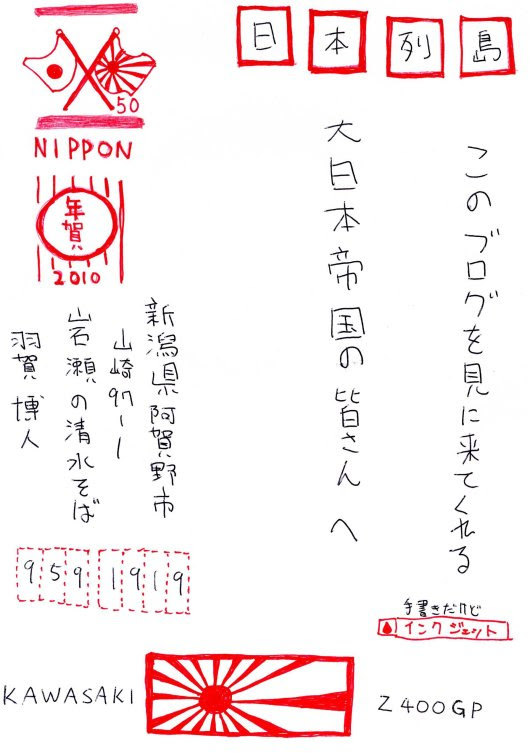 日本列島
このブログを見に来てくれる
大日本帝国の皆さんへ
50
NIPPON
年賀
2010
新潟県阿賀野市
山崎97-1
岩瀬の清水そば
羽賀博人
959 1919
手書きだけど
インクジェット
KAWASAKI
Z400GP